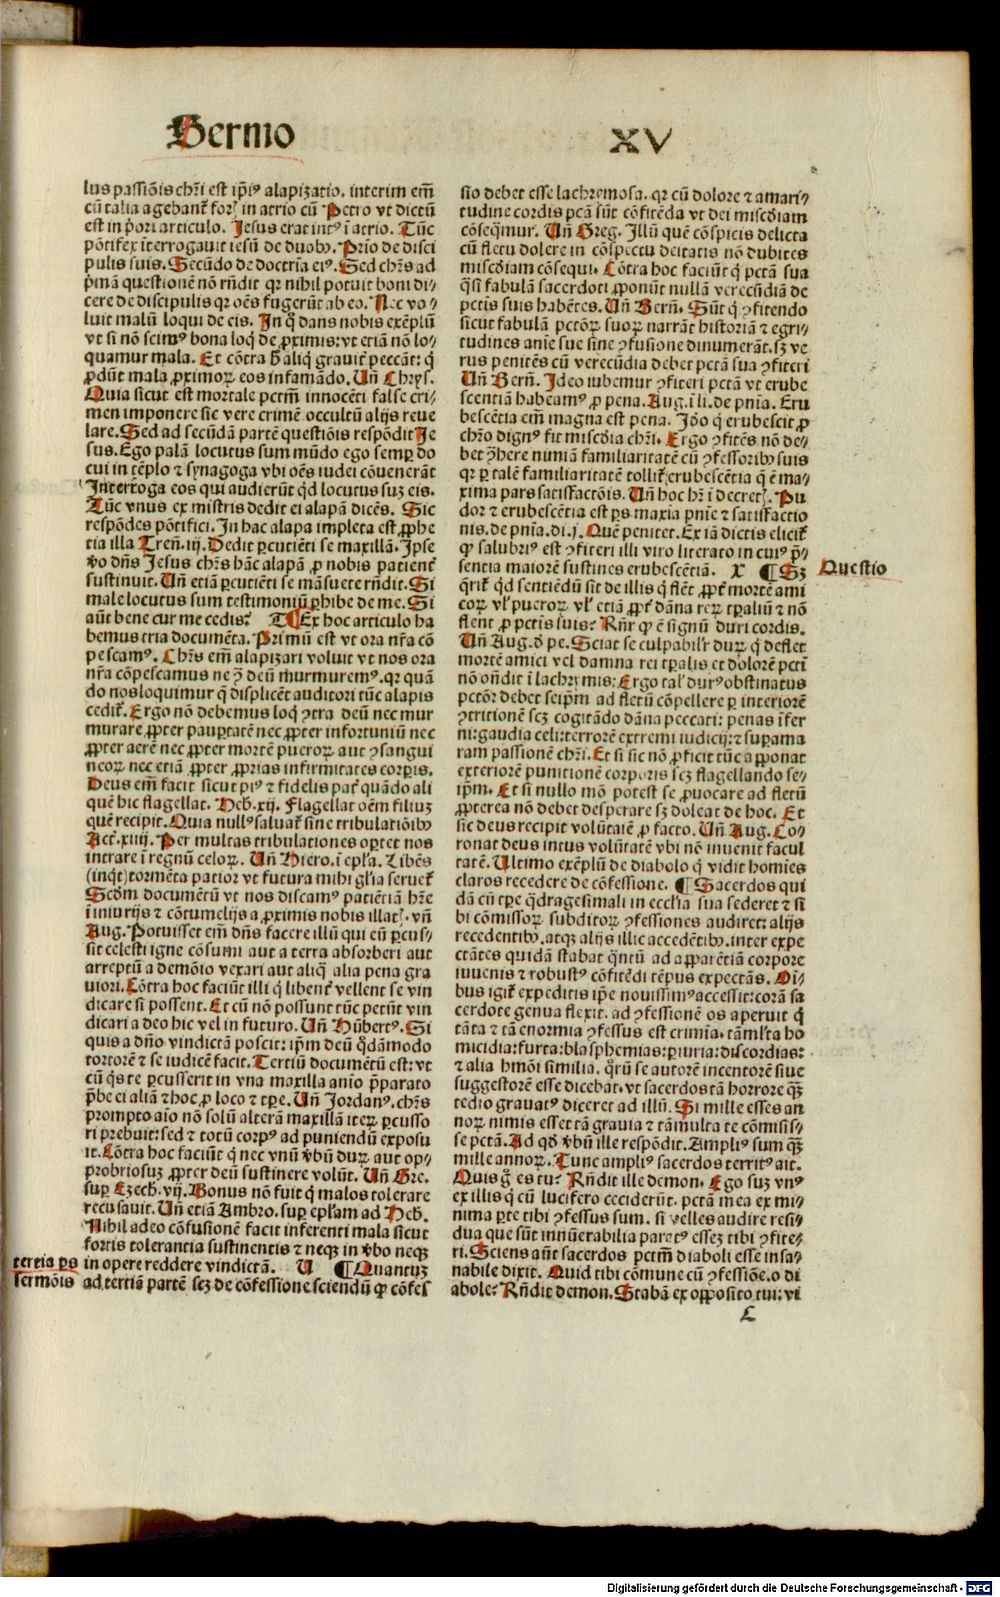 Sermo
XV
lus passiõis chr̃i est ip̃iꝰ alapizatio. interim em̃
cũ talia agebant᷑ forꝭ in atrio cũ Petro vt dictũ
est in p̃ori articulo. Jesus erat intꝰ ĩ atrio. Tũc
põtifex ĩterrogauit iesũ de duobꝰ. Prĩo de disci
pulis suis. Secũdo de doctrĩa eiꝰ. Sed chr̃s ad
p̃mã questionẽ nõ rñdit qꝛ nihil potuit boni di⸗
cere de discipulis qꝛ oẽs fugerũt ab eo. Nec vo⸗
luit malũ loqui de eis. In q̊ dans nobis exẽplũ
vt si nõ scimꝰ bona loq̇ de ꝓximis: vt etiã nõ lo⸗
quamur mala. Et cõtra h̃ aliq̇ grauit᷑ peccãt: q̇
ꝓdũt mala ꝓximoꝝ eos infamãdo. Uñ Chrẏs.
Quia sicut est mortale pctm̃ innocẽti false cri⸗
men imponere sic vere crimẽ occultũ alijs reue
lare. Sed ad secũdã partẽ questiõis respõdit Je
sus. Ego palã locutus sum mũdo ego semꝑ do
cui in tẽplo ⁊ sẏnagoga vbi oẽs iudei cõuenerãt
Interr̃oga eos qui audierũt qd̛ locutus suꝫ eis.
Tũc vnus ex mĩstris dedit ei alapã dicẽs. Sic
respõdes põtifici. In hac alapa impleta est ꝓphe
tia illa Treñ. iij. Dedit ꝑcutiẽti se maxillã. Ipse
ṽo dñs Jesus chr̃s hãc alapã ꝓ nobis patient᷑
sustinuit. Uñ etiã ꝑcutiẽti se mãsuete rñdit. Si
male locutus sum testimoniũ ꝑhibe de me. Si
aũt bene cur me cedis? T ¶ Ex hoc articulo ha
bemus tria documẽta. Primũ est vt ora nr̃a cõ
pescamꝰ. Chr̃s em̃ alapizari voluit vt nos ora
nr̃a cõpescamus ne ꝯ̃ deũ murmuremꝰ. qꝛ quã
do nos loquimur q̇ displicẽt auditori tũc alapis
cedit᷑. Ergo nõ debemus loq̇ ꝯtra deũ nec mur
murare ꝓpter pauꝑtatẽ nec ꝓpter infortuniũ nec
ꝓpter aerẽ nec ꝓpter mortẽ pueroꝝ aut ꝯsangui
neoꝝ nec etiã ꝓpter ꝓprias infirmitates corꝑis.
Deus em̃ facit sicut piꝰ ⁊ fidelis pat᷑ quãdo ali
quẽ hic flagellat. Heb̃. xij. Flagellat oẽm filiuꝫ
quẽ recipit. Quia nullꝰ saluat᷑ sine tribulatiõibꝰ
Act᷑. xiiij. Per multas tribulationes oꝑtet nos
intrare ĩ regnũ celoꝝ. Uñ Hiero. ĩ epl̃a. Libẽs
(inq̇t) tormẽta patior vt futura mihi gl̃ia seruet᷑
Scd̃m documẽtũ vt nos discamꝰ patiẽtiã hr̃e
ĩ iniurijs ⁊ cõtumelijs a ꝓximis nobis illatꝭ. vñ
Aug. Potuisset em̃ dñs facere illũ qui eũ ꝑcus⸗
sit celesti igne cõsumi aut a terra absorberi aut
arreptũ a demõio vexari aut aliq̃ alia pena gra
uiori. Cõtra hoc faciũt illi q̇ libent᷑ vellent se vin
dicare si possent. Et cũ nõ possunt tũc petũt vin
dicari a deo hic vel in futuro. Uñ Hũbertꝰ. Si
quis a dño vindictã poscit: ip̃m deũ q̃dãmodo
tortorẽ ⁊ se iudicẽ facit. Tertiũ documẽtũ est: vt
cũ q̇s te ꝑcusserit in vna maxilla aĩo p̃parato
p̃be ei aliã ⁊ hoc ꝓ loco ⁊ tꝑe. Uñ Jordanꝰ. chr̃s
prompto aĩo nõ solũ alterã maxillã iteꝝ ꝑcusso
ri prebuit: sed ⁊ totũ corpꝰ ad puniendũ exposu
it. Cõtra hoc faciũt q̇ nec vnũ ṽbũ duꝝ aut op⸗
probriosuꝫ ꝓpter deũ sustinere volũt. Uñ Gre.
suꝑ Ezech̃. vij. Bonus nõ fuit q̇ malos tolerare
recusauit. Uñ etiã Ambro. suꝑ epl̃am ad Heb̃.
Nihil adeo cõfusionẽ facit inferenti mala sicut
fortis tolerantia sustinentis ⁊ neqꝫ in ṽbo neqꝫ
in opere reddere vindictã. U ¶ Quantuꝫ
ad tertiã partẽ scꝫ de cõfessione sciendũ ꝙ cõfes
tertia ꝑs
sermõis
sio debet esse lachrẏmosa. qꝛ cũ dolore ⁊ amari⸗
tudine cordis pctã sũt cõfitẽda vt dei misc̃diam
cõseq̃mur. Uñ Greg. Illũ quẽ cõspicis delicta
cũ fletu dolere in cõspectu deitatis nõ dubites
misc̃diam cõsequi. Cõtra hoc faciũt q̇ pctã sua
q̃si fabulã sacerdoti ꝓponũt nullã verecũdiã de
pctis suis habẽtes. Uñ Berñ. Sũt q̇ ꝯfitendo
sicut fabulã pctõꝝ suoꝝ narrãt historiã ⁊ egri⸗
tudines anĩe sue sine ꝯfusione dinumerãt. sꝫ ve
rus penitẽs cũ verecũdia debet pctã sua ꝯfiteri
Uñ Berñ. Ideo iubemur ꝯfiteri pctã vt erube
scentiã habeamꝰ ꝓ pena. Aug. ĩ li. de pnĩa. Eru
bescẽtia em̃ magna est pena. Iðo q̇ erubescit ꝓ
chr̃o dignꝰ fit misc̃dia chr̃i. Ergo ꝯfitẽs nõ de⸗
bet ꝯ̃here nimiã familiaritatẽ cũ ꝯfessoribꝰ suis
qꝛ ꝑ talẽ familiaritatẽ tollit᷑ erubescẽtia q̃ ẽ ma⸗
xima pars satisfactõis. Uñ hoc hr̃ ĩ decretꝭ. Pu
dor ⁊ erubescẽtia est ꝑs maxĩa pnĩe ⁊ satisfactio
nis. de pnĩa. di. j. Quẽ penitet. Ex iã dictis elicit᷑
ꝙ salubriꝰ est ꝯfiteri illi viro literato in cuiꝰ p̃⸗
sentia maiorẽ sustines erubescẽtiã. X ¶ Sꝫ
q̃rit᷑ qd̛ sentiẽdũ sit de illis q̇ flẽt ꝓpt᷑ mortẽ ami
coꝝ vl̃ pueroꝝ vl̃ etiã ꝓpt᷑ dãna reꝝ tꝑaliũ ⁊ nõ
flent ꝓ pctis suis? Rñr ꝙ ẽ signũ duri cordis.
Uñ Aug. ð pe. Sciat se culpabilr̃ duꝝ q̇ deflet
mortẽ amici vel damna rei tꝑalis et dolorẽ pcti
nõ oñdit ĩ lachrẏmis: Ergo tal̃ durꝰ obstinatus
pctõr debet seip̃m ad fletũ cõpellere ꝑ interiorẽ
ꝯtritionẽ scꝫ cogitãdo dãna peccati: penas ĩfer
ni: gaudia celi: terrorẽ extremi iudicij: ⁊ suꝑama
ram passionẽ chr̃i. Et si sic nõ ꝓficit tũc apponat
exteriorẽ punitionẽ corporis scꝫ flagellando se⸗
ip̃m. Et si nullo mõ potest se ꝓuocare ad fletũ
ꝓpterea nõ debet desperare sꝫ doleat de hoc. Et
sic deus recipit volũtatẽ ꝓ facto. Uñ Aug. Co⸗
ronat deus intus volũtatẽ vbi nõ inuenit facul
tatẽ. Ultimo exẽplũ de diabolo q̇ vidit homĩes
claros recedere de cõfessione. ¶ Sacerdos qui
dã cũ tꝑe q̃dragesimali in eccl̃ia sua sederet ⁊ si
bi cõmissoꝝ subditoꝝ ꝯfessiones audiret: alijs
recedentibꝰ. atqꝫ alijs illic accedẽtibꝰ. inter expe
ctãtes quidã stabat q̃ntũ ad apparẽtiã corpore
iuuenis ⁊ robustꝰ cõfitẽdi tẽpus expectãs. Oĩ⸗
bus igit᷑ expeditis ip̃e nouissimꝰ accessit: corã sa
cerdote genua flexit. ad ꝯfessionẽ os aperuit q̇
tãta ⁊ tã enormia ꝯfessus est crimĩa. tã ml̃ta ho
micidia: furta: blasphemias: ꝑiuria: discordias:
⁊ alia hmõi similia. q̃rũ se autorẽ incentorẽ siue
suggestorẽ esse dicebat. vt sacerdos tã horrore qꝫ̃
tedio grauatꝰ diceret ad illũ. Si mille esses an
noꝝ nimis esset tã grauia ⁊ tã multa te cõmisis⸗
se pctã. Ad qð ṽbũ ille respõdit. Ampliꝰ sum qꝫ̃
mille annoꝝ. Tunc ampliꝰ sacerdos territꝰ ait.
Quis g̊ es tu? Rñdit ille demon. Ego suꝫ vnꝰ
ex illis q̇ cũ lucifero ceciderũt. pctã mea ex mi⸗
nima ꝑte tibi ꝯfessus sum. si velles audire resi⸗
dua que sũt innũerabilia paratꝰ esseꝫ tibi ꝯfite⸗
ri. Sciens aũt sacerdos pctm̃ diaboli esse insa⸗
nabile dixit. Quid tibi cõmune cũ ꝯfessiõe. o di
abole? Rñdit demon. Stabã ex opposito tui: vi
Questio
L
Digitalisierung gefördert durch die Deutsche Forschungsgemeinschaft - DFG